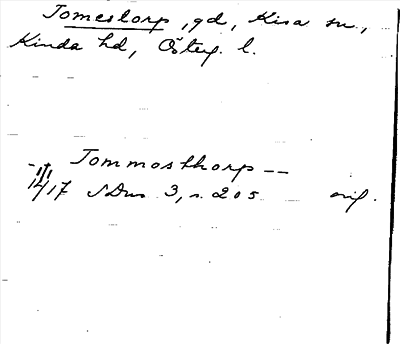 Tomestorp, gd, Kisa sn.,
Kinda hd, Österg. l.
Tommosthorp --
14/17 SDns 3, s. 205 orig.